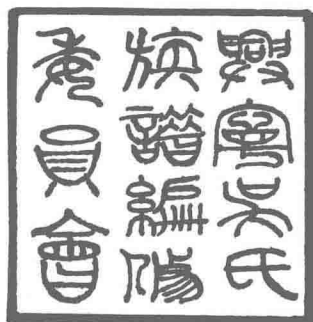 興寧吳氏
族譜編修
委員會